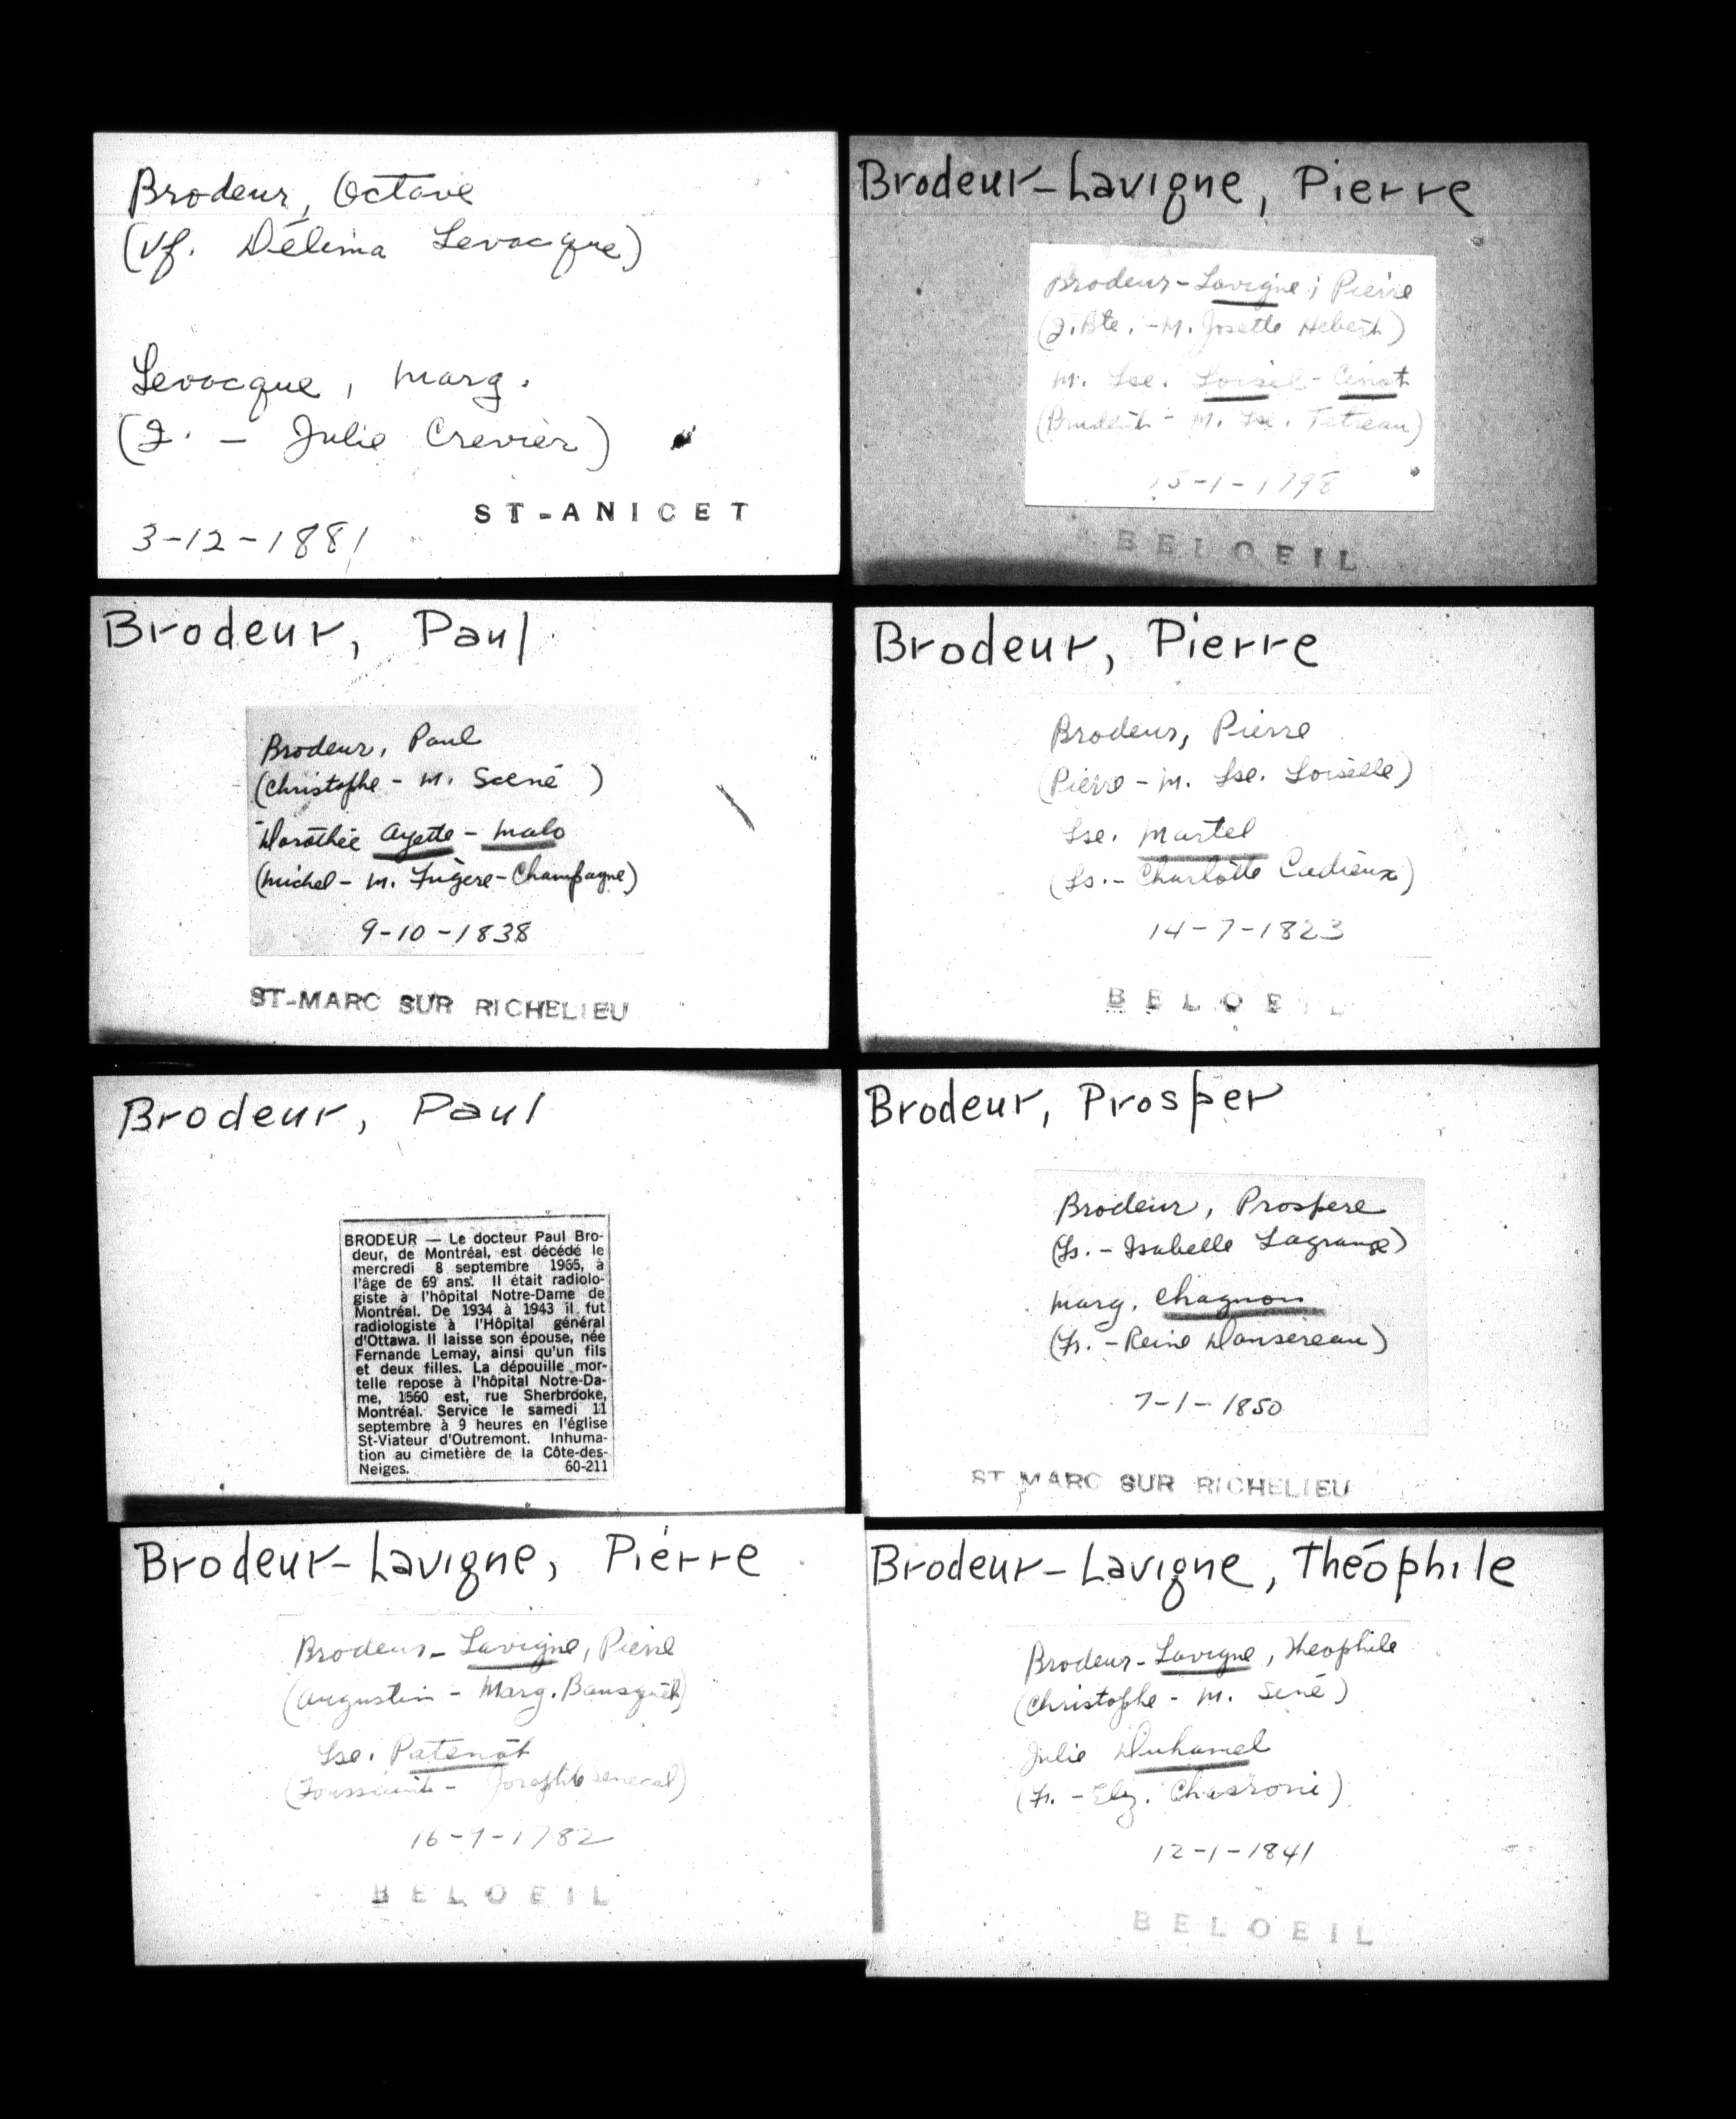 Brodeur, Octave
(Vf. Délima Levacque)
Levacque, Marg.
(J. - Julie Crevier)
ST-ANICET
3-12-1881
Brodeur, Paul
Brodeur, Paul
(Christophe - M. Scené )
Dorothée Ayette - Malo
(Michel - M. Fugère-Champagne)
9-10-1838
ST-MARC SUR RICHELIEU
Brodeur, Paul
BRODEUR — Le docteur Paul Bro-
deur, de Montréal, est décédé le
mercredi 8 septembre 1965, à
l'âge de 69 ans. Il était radiolo-
giste à l'hôpital Notre-Dame de
Montréal. De 1934 à 1943 il fut
radiologiste à l'Hôpital général
d'Ottawa. Il laisse son épouse, née
Fernande Lemay, ainsi qu'un fils
et deux filles. La dépouille mor-
telle repose à l'hôpital Notre-Da-
me, 1560 est, rue Sherbrooke,
Montréal. Service le samedi 11
septembre à 9 heures en l'église
St-Viateur d'Outremont. Inhuma-
tion au cimetière de la Côte-des-
Neiges. 60-211
Brodeur-Lavigne, Pierre
Brodeur-Lavigne, Pierre
(Augustin - Marg. Bousquet)
Lse. Patenôt
(Toussaint - Josephte Senecal)
16-9-1782
BELOEIL
Brodeur-Lavigne, Pierre
Brodeur-Lavigne, Pierre
(J. Bte. - M. Josette Hebert)
M. Lse. Loisel-
(Prudent - M. Lse. Tetreau)
15-1-1798
BELOEIL
Brodeur, Pierre
Brodeur, Pierre
(Pierre - M. Lse. Loiselle)
Lse. Martel
(Ls. - Charlotte Cadieux)
14-7-1823
BELOEIL
Brodeur, Prosper
Brodeur, Prospere
(Ls. - Isabelle Lagrange)
Marg. Chagnon
(Fr. - Reine Dansereau)
7-1-1850
ST MARC SUR RICHELIEU
Brodeur-Lavigne, Théophile
Brodeur-Lavigne, Theophile
(Christophe - M. Sené)
Julie Duhamel
(Fr. - Elz. )
12-1-1841
BELOEIL